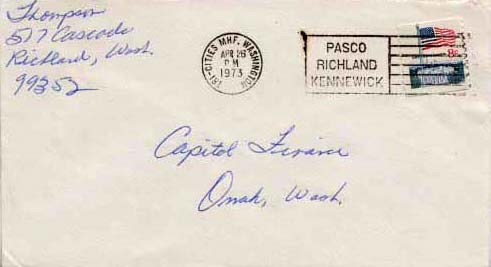 Thompson
517 Cascade
Richland, Wash.
99352
TRI-CITIES MHF, WASHINGTON
APR 26
PM
1973
PASCO
RICHLAND
KENNEWICK
8c
Capitol Finance
Omak, Wash.